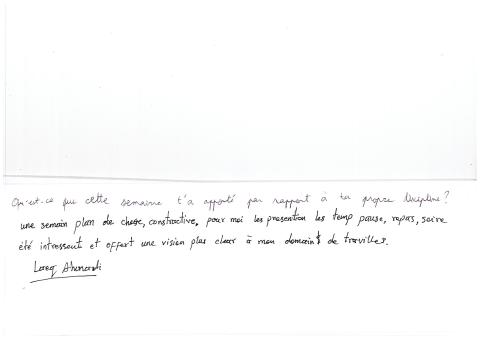 Qu'est-ce que cette semaine t'a apporté par rapport à ta propre discipline?
une semain plan de chose, constractive, pour moi les presention les temp pause, repas, soire
été intressent et offert une vision plus clear à mon domain de travilles.